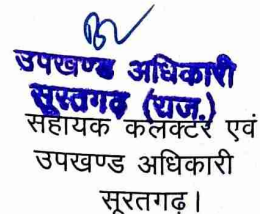 उपखण्ड अधिकारी
सूरतगढ़ (राज.)
सहायक कलक्टर एवं
उपखण्ड अधिकारी
सूरतगढ़।